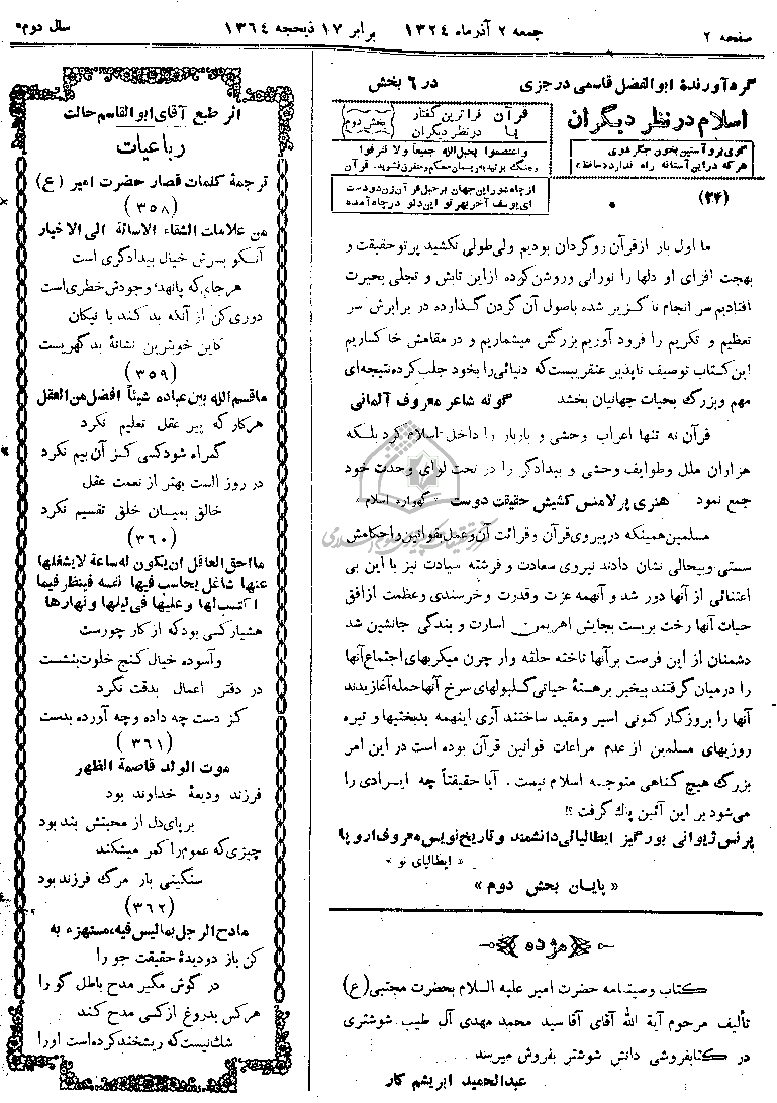 صفحه ۲
جمعه ۲ آذر ماه ۱۳۲۴ برابر ۱۷ ذیحجه ۱۳۶۴
سال دوم
گرد آورندهٔ ابوالفضل قاسمی درجزی
در ۶ بخش
اسلام در نظر دیگران
قرآن فراترین گفتار
یا در نظر دیگران
بخش دوم
گوی فرو آستین بخون جگر شوی
هر که در این آستانه راه ندارد «حافظ»
واعتصموا بحبل الله جمیعاً ولا تفرقوا
وچنگ بزنید به ریسمان محکم و متفرق نشوید. قرآن
از چاه شور این جهان بر حبل قرآن زن دو دست
ای یوسف آخر بهر تو این دلو در چاه آمده
(۳۴)
ما اول بار از قرآن روگردان بودیم ولی طولی نکشید پرتو حقیقت و
بهجت افزای او دلها را نورانی وروشن کرده از این تابش و تجلی بحیرت
افتادیم سر انجام ناگزیر شده باصول آن گردن گذارده در برابرش سر
تعظیم و تکریم را فرود آوریم بزرگش میشماریم و در مقامش خاکساریم
این کتاب توصیف ناپذیر عنقریبست که دنیائی را بخود جلب کرده نتیجه‌ای
مهم و بزرگ بحیات جهانیان بخشد گوته شاعر معروف آلمانی
قرآن نه تنها اعراب وحشی و بار بار را داخل اسلام کرد بلکه
هزاران ملل و طوایف وحشی و بیدادگر را در تحت لوای وحدت خود
جمع نمود هنری پر لامنس کشیش حقیقت دوست «گهواره اسلام»
مسلمین همینکه در پیروی قرآن و قرائت آن و عمل بقوانین و احکامش
سستی و بیحالی نشان دادند نیروی سعادت و فرشته سیادت نیز با این بی
اعتنائی از آنها دور شد و آنهمه عزت و قدرت و خرسندی و عظمت از افق
حیات آنها رخت بربست بجایش اهریمن اسارت و بندگی جانشین شد
دشمنان از این فرصت بر آنها تاخته حلقه وار چون میکربهای اجتماع آنها
را در میان گرفتند بیخبر بر هستهٔ حیاتی گلبولهای سرخ آنها حمله آغازیدند
آنها را بروزگار کنونی اسیر و مقید ساختند آری اینهمه بدبختیها و تیره
روزیهای مسلمین از عدم مراعات قوانین قرآن بوده است در این امر
بزرگ هیچ گناهی متوجه اسلام نیست . آیا حقیقتاً چه ایرادی را
می‌شود بر این آئین پاک گرفت؟!
پرنس ژیوانی بورگیز ایطالیائی دانشمند و تاریخ نویس معروف اروپا
« ایطالیای نو »
« پایان بخش دوم »
مژده
کتاب وصیتنامه حضرت امیر علیه السلام بحضرت مجتبی (ع)
تألیف مرحوم آیة الله آقای آقا سید محمد مهدی آل طیب شوشتری
در کتابفروشی دانش شوشتر بفروش میرسد
عبدالحمید ابریشم کار
اثر طبع آقای ابوالقاسم حالت
رباعیات
ترجمهٔ کلمات قصار حضرت امیر (ع)
(۳۵۸)
من علامات الشقاء الاسائة الی الاخیار
آنکو بسرش خیال بیدادگری است
هر جای که پا نهد؛ وجودش خطری است
دوری کن از آنکه بد کند با نیکان
کاین خوبترین نشانهٔ بدگهریست
(۳۵۹)
ماقسم الله بین عباده شیئاً افضل من العقل
هر کار که پیر عقل تعلیم نکرد
گمراه شود کسی کز آن بیم نکرد
در روز الست بهتر از نعمت عقل
خالق بمیان خلق تقسیم نکرد
(۳۶۰)
ما احق العاقل ان یکون له ساعة لا یشغلها
عنها شاغل یحاسب فیها نفسه فینظر فیما
اکتسب لها وعلیها فی لیلها و نهارها
هشیار کسی بود که از کار چو رست
وآسوده خیال کنج خلوت بنشست
در دفتر اعمال بدقت نگرد
کز دست چه داده و چه آورده بدست
(۳۶۱)
موت الولد قاصمة الظهر
فرزند ودیعهٔ خداوند بود
بر پای دل از محبتش بند بود
چیزی که عموم را کمر میشکند
سنگینی بار مرگ فرزند بود
(۳۶۲)
مادح الرجل بما لیس فیه، مستهزء به
کن باز دو دیدهٔ حقیقت جو را
در گوش مگیر مدح باطل گو را
هر کس بدروغ از کسی مدح کند
شك نیست که ریشخند کرده است او را